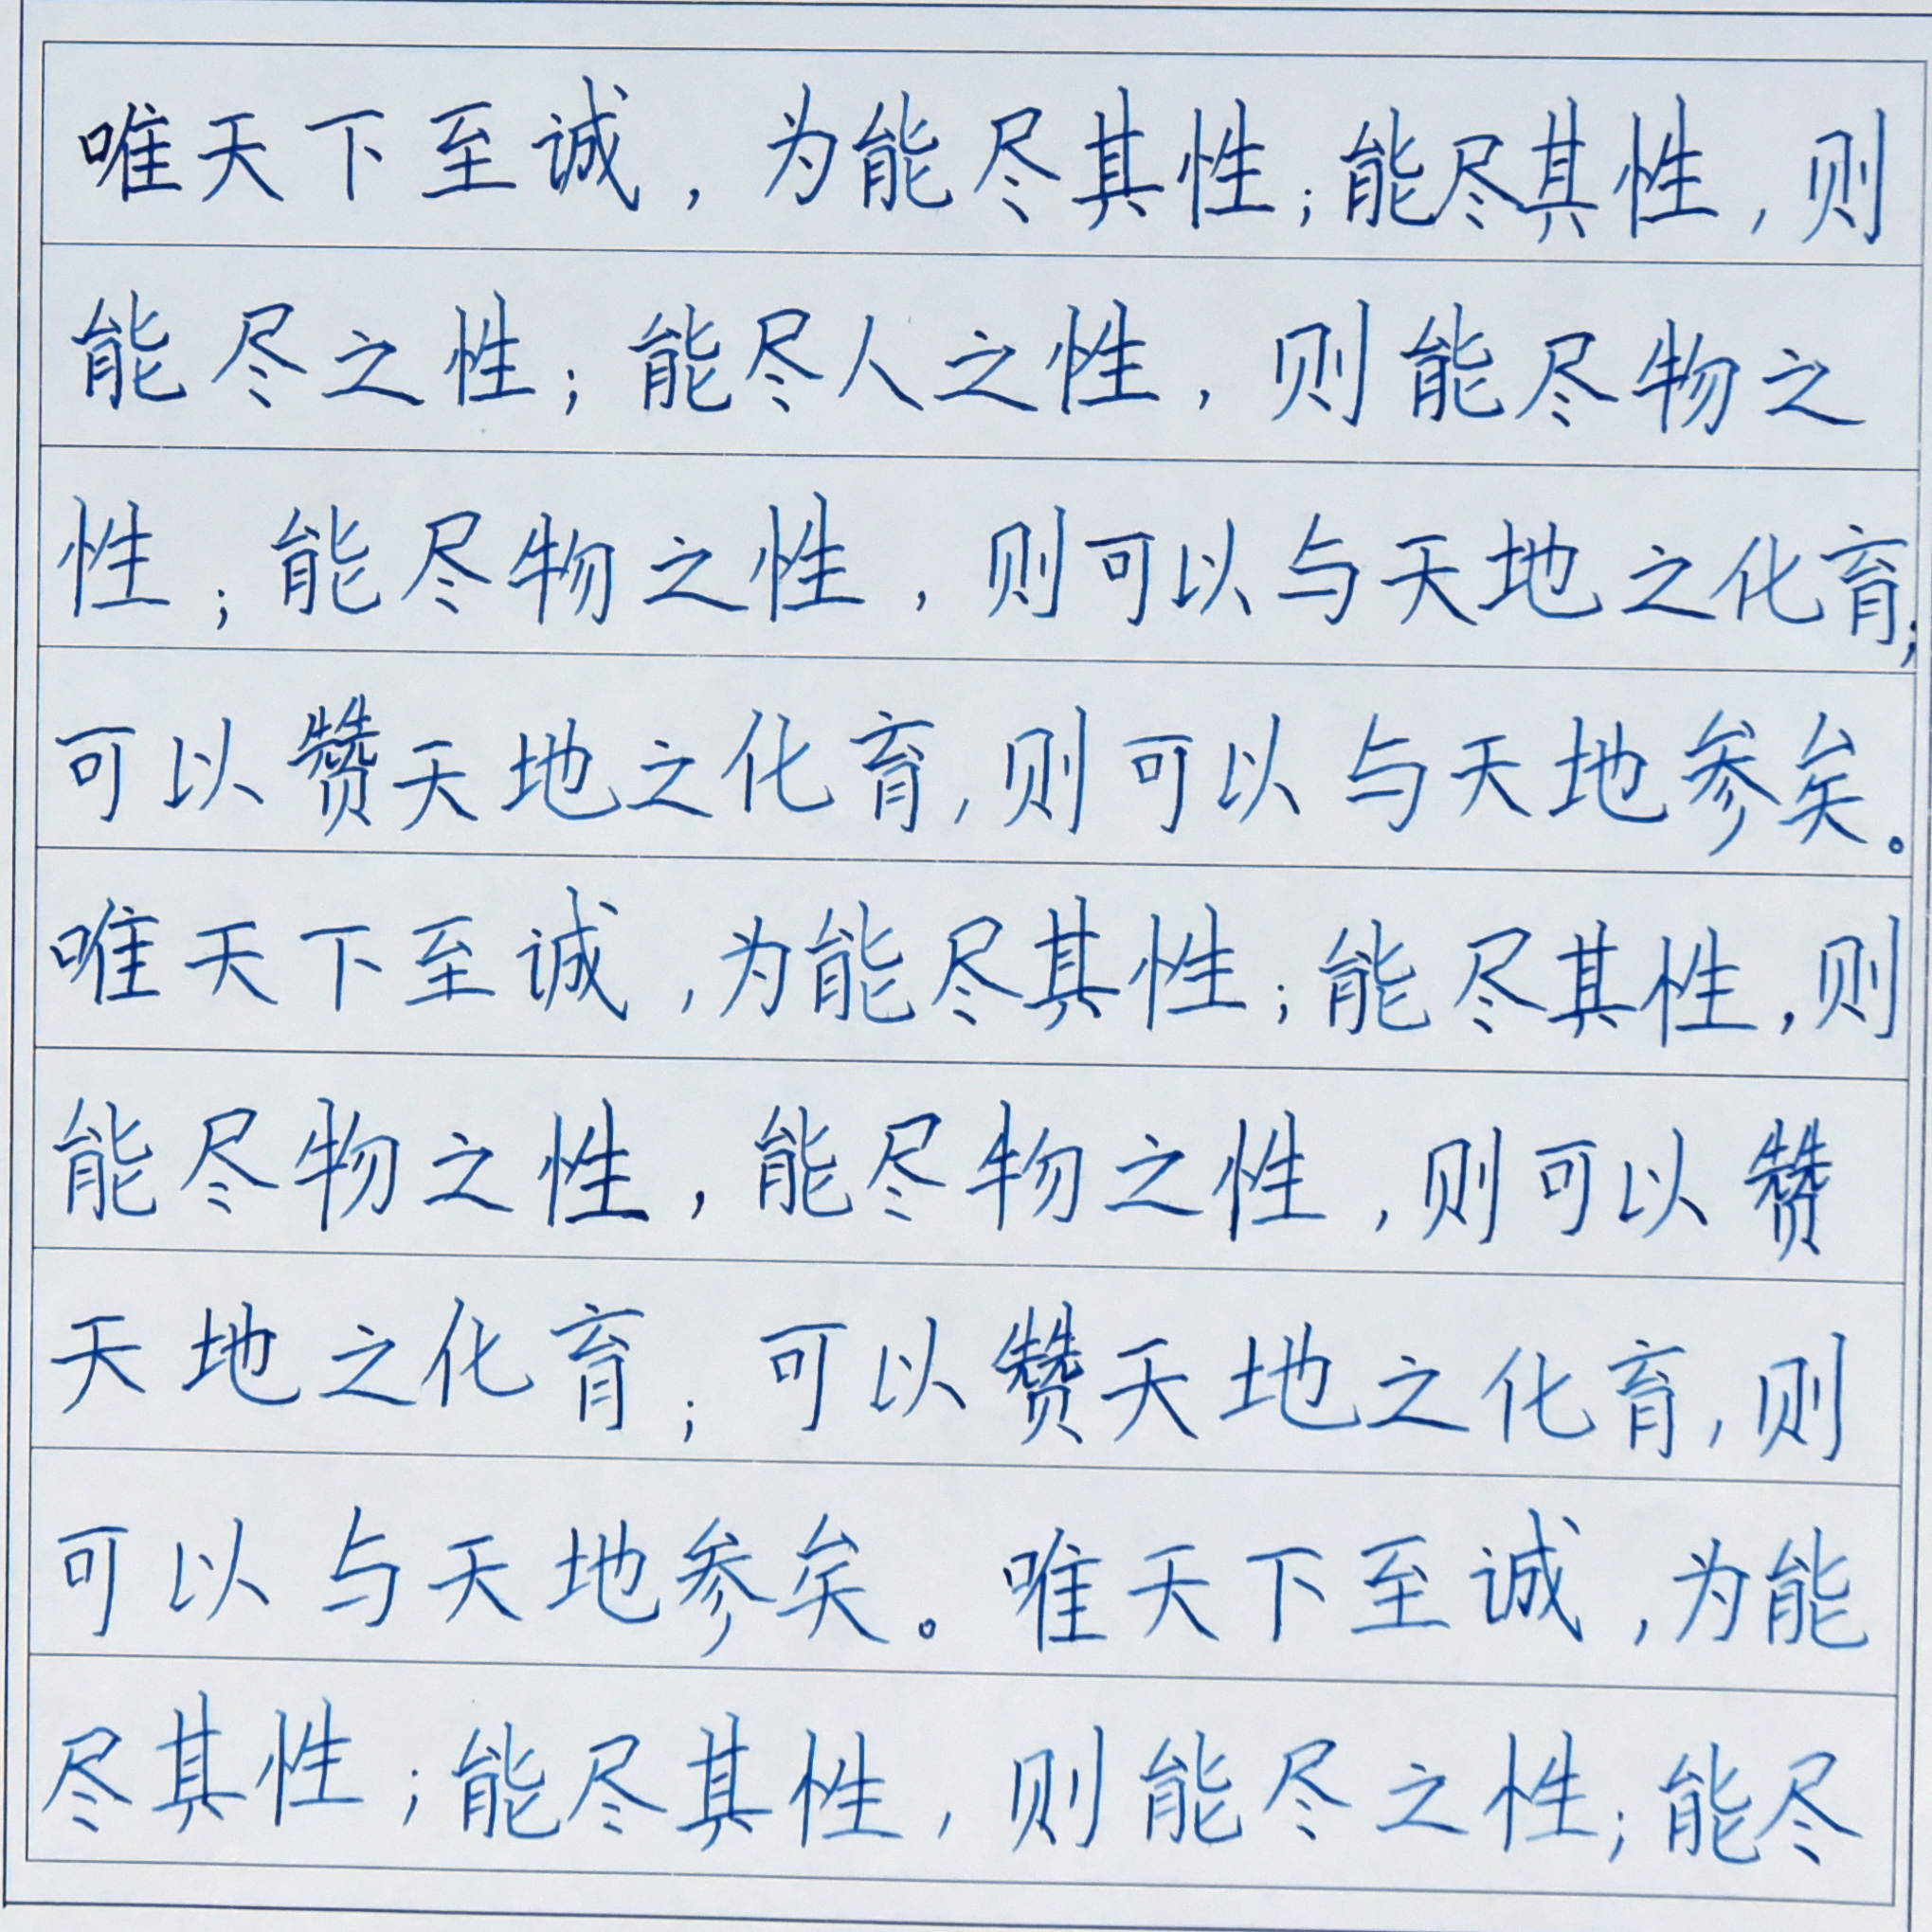 唯天下至诚，为能尽其性；能尽其性，则
能尽之性；能尽人之性，则能尽物之
性；能尽物之性，则可以与天地之化育；
可以赞天地之化育，则可以与天地参矣。
唯天下至诚，为能尽其性；能尽其性，则
能尽物之性，能尽物之性，则可以赞
天地之化育；可以赞天地之化育，则
可以与天地参矣。唯天下至诚，为能
尽其性；能尽其性，则能尽之性；能尽